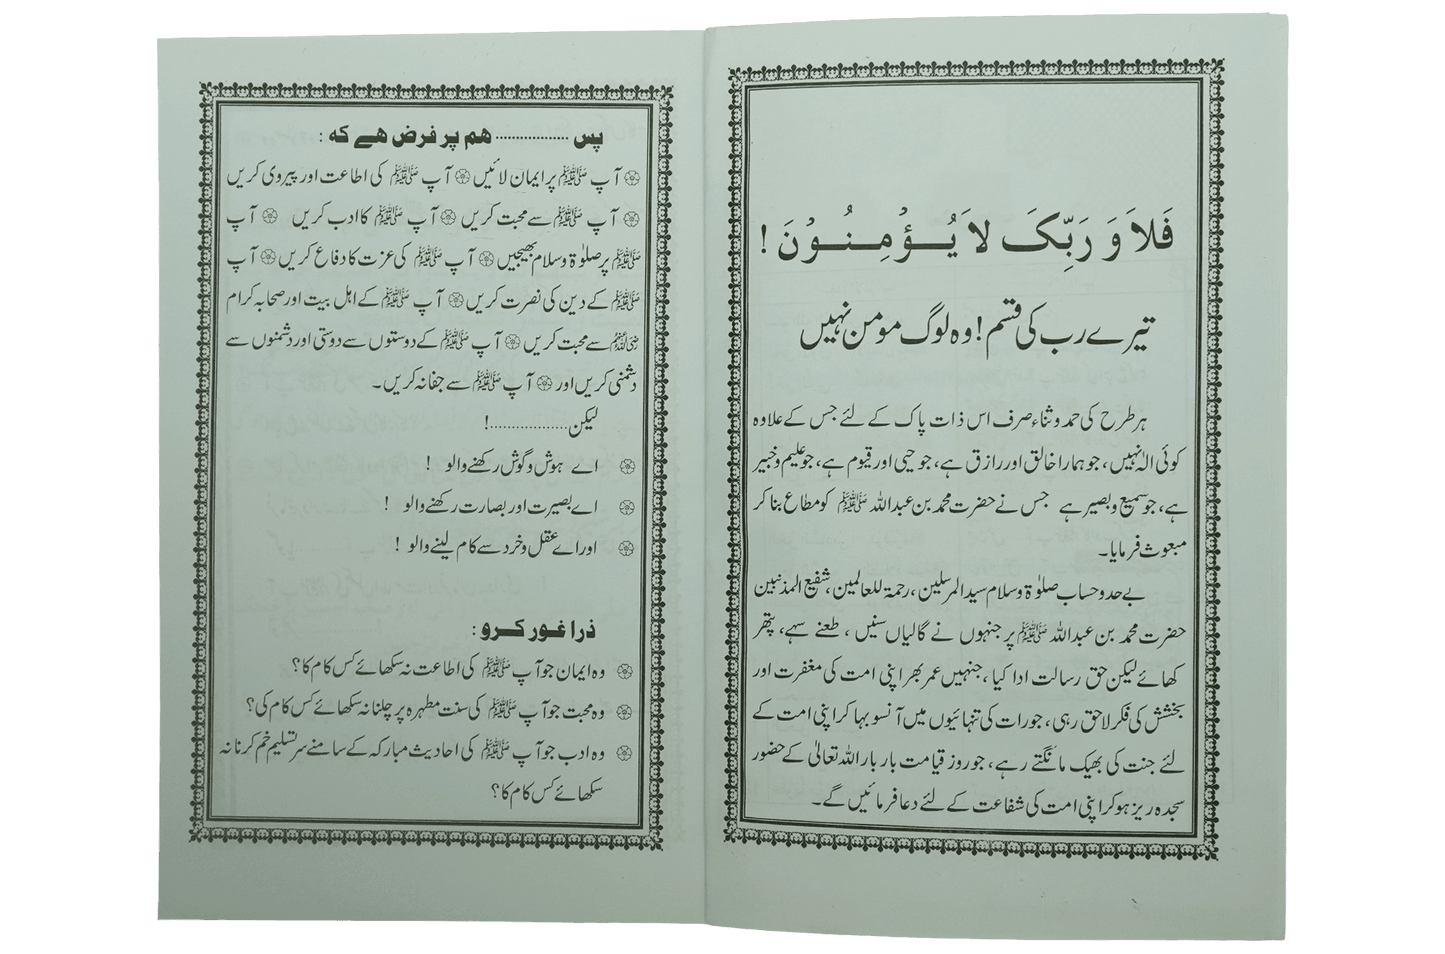 فَلاَ وَ رَبِّکَ لاَ یُؤْمِنُوْنَ !
تیرے رب کی قسم! وہ لوگ مومن نہیں
ہر طرح کی حمد و ثناء صرف اس ذات پاک کے لئے جس کے علاوہ
کوئی الٰہ نہیں، جو ہمارا خالق اور رازق ہے، جو حیی اور قیوم ہے، جو علیم و خبیر
ہے، جو سمیع و بصیر ہے جس نے حضرت محمد بن عبداللہ ﷺ کو مطاع بنا کر
مبعوث فرمایا۔
بے حد و حساب صلوٰۃ و سلام سید المرسلین، رحمۃ للعالمین، شفیع المذنبین
حضرت محمد بن عبداللہ ﷺ پر جنہوں نے گالیاں سنیں، طعنے سہے، پتھر
کھائے لیکن حق رسالت ادا کیا، جنہیں عمر بھر اپنی امت کی مغفرت اور
بخشش کی فکر لاحق رہی، جو رات کی تنہائیوں میں آنسو بہا کر اپنی امت کے
لئے جنت کی بھیک مانگتے رہے، جو روز قیامت بار بار اللہ تعالیٰ کے حضور
سجدہ ریز ہو کر اپنی امت کی شفاعت کے لئے دعا فرمائیں گے۔
پس .................. ھم پر فرض ھے کہ :
❁ آپ ﷺ پر ایمان لائیں ❁ آپ ﷺ کی اطاعت اور پیروی کریں
❁ آپ ﷺ سے محبت کریں ❁ آپ ﷺ کا ادب کریں ❁ آپ
ﷺ پر صلوٰۃ و سلام بھیجیں ❁ آپ ﷺ کی عزت کا دفاع کریں ❁ آپ
ﷺ کے دین کی نصرت کریں ❁ آپ ﷺ کے اہل بیت اور صحابہ کرام
رضی اللہ عنہم سے محبت کریں ❁ آپ ﷺ کے دوستوں سے دوستی اور دشمنوں سے
دشمنی کریں اور ❁ آپ ﷺ سے جفا نہ کریں۔
لیکن..................!
❁ اے ہوش و گوش رکھنے والو !
❁ اے بصیرت اور بصارت رکھنے والو !
❁ اور اے عقل و خرد سے کام لینے والو !
ذرا غور کرو :
❁ وہ ایمان جو آپ ﷺ کی اطاعت نہ سکھائے کس کام کا؟
❁ وہ محبت جو آپ ﷺ کی سنت مطہرہ پر چلنا نہ سکھائے کس کام کی؟
❁ وہ ادب جو آپ ﷺ کی احادیث مبارکہ کے سامنے سر تسلیم خم کرنا نہ
سکھائے کس کام کا؟